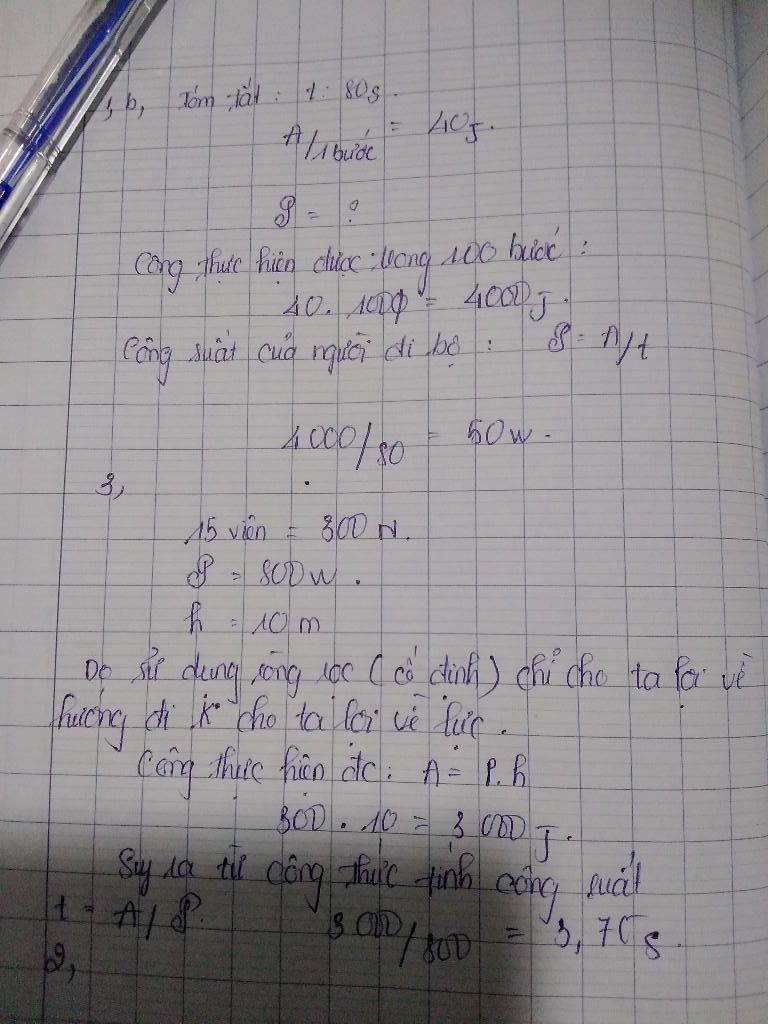 1, b, Tóm tắt: t: 80s.
A/1 bước = 40J.
P = ?
Công thực hiện được trong 100 bước:
40. 100 = 4000J.
Công suất của người đi bộ: P = A/t
4000/80 = 50W.
3,
15 viên = 300N.
P = 800W.
h = 10m
Do sử dụng ròng rọc (cố định) chỉ cho ta lợi về
hướng đi k° cho ta lợi về lực.
Công thực hiện đc: A = P.h
300. 10 = 3000J.
Suy ra từ công thức tính công suất
t = A/P. 3000/800 = 3,75s.
2,